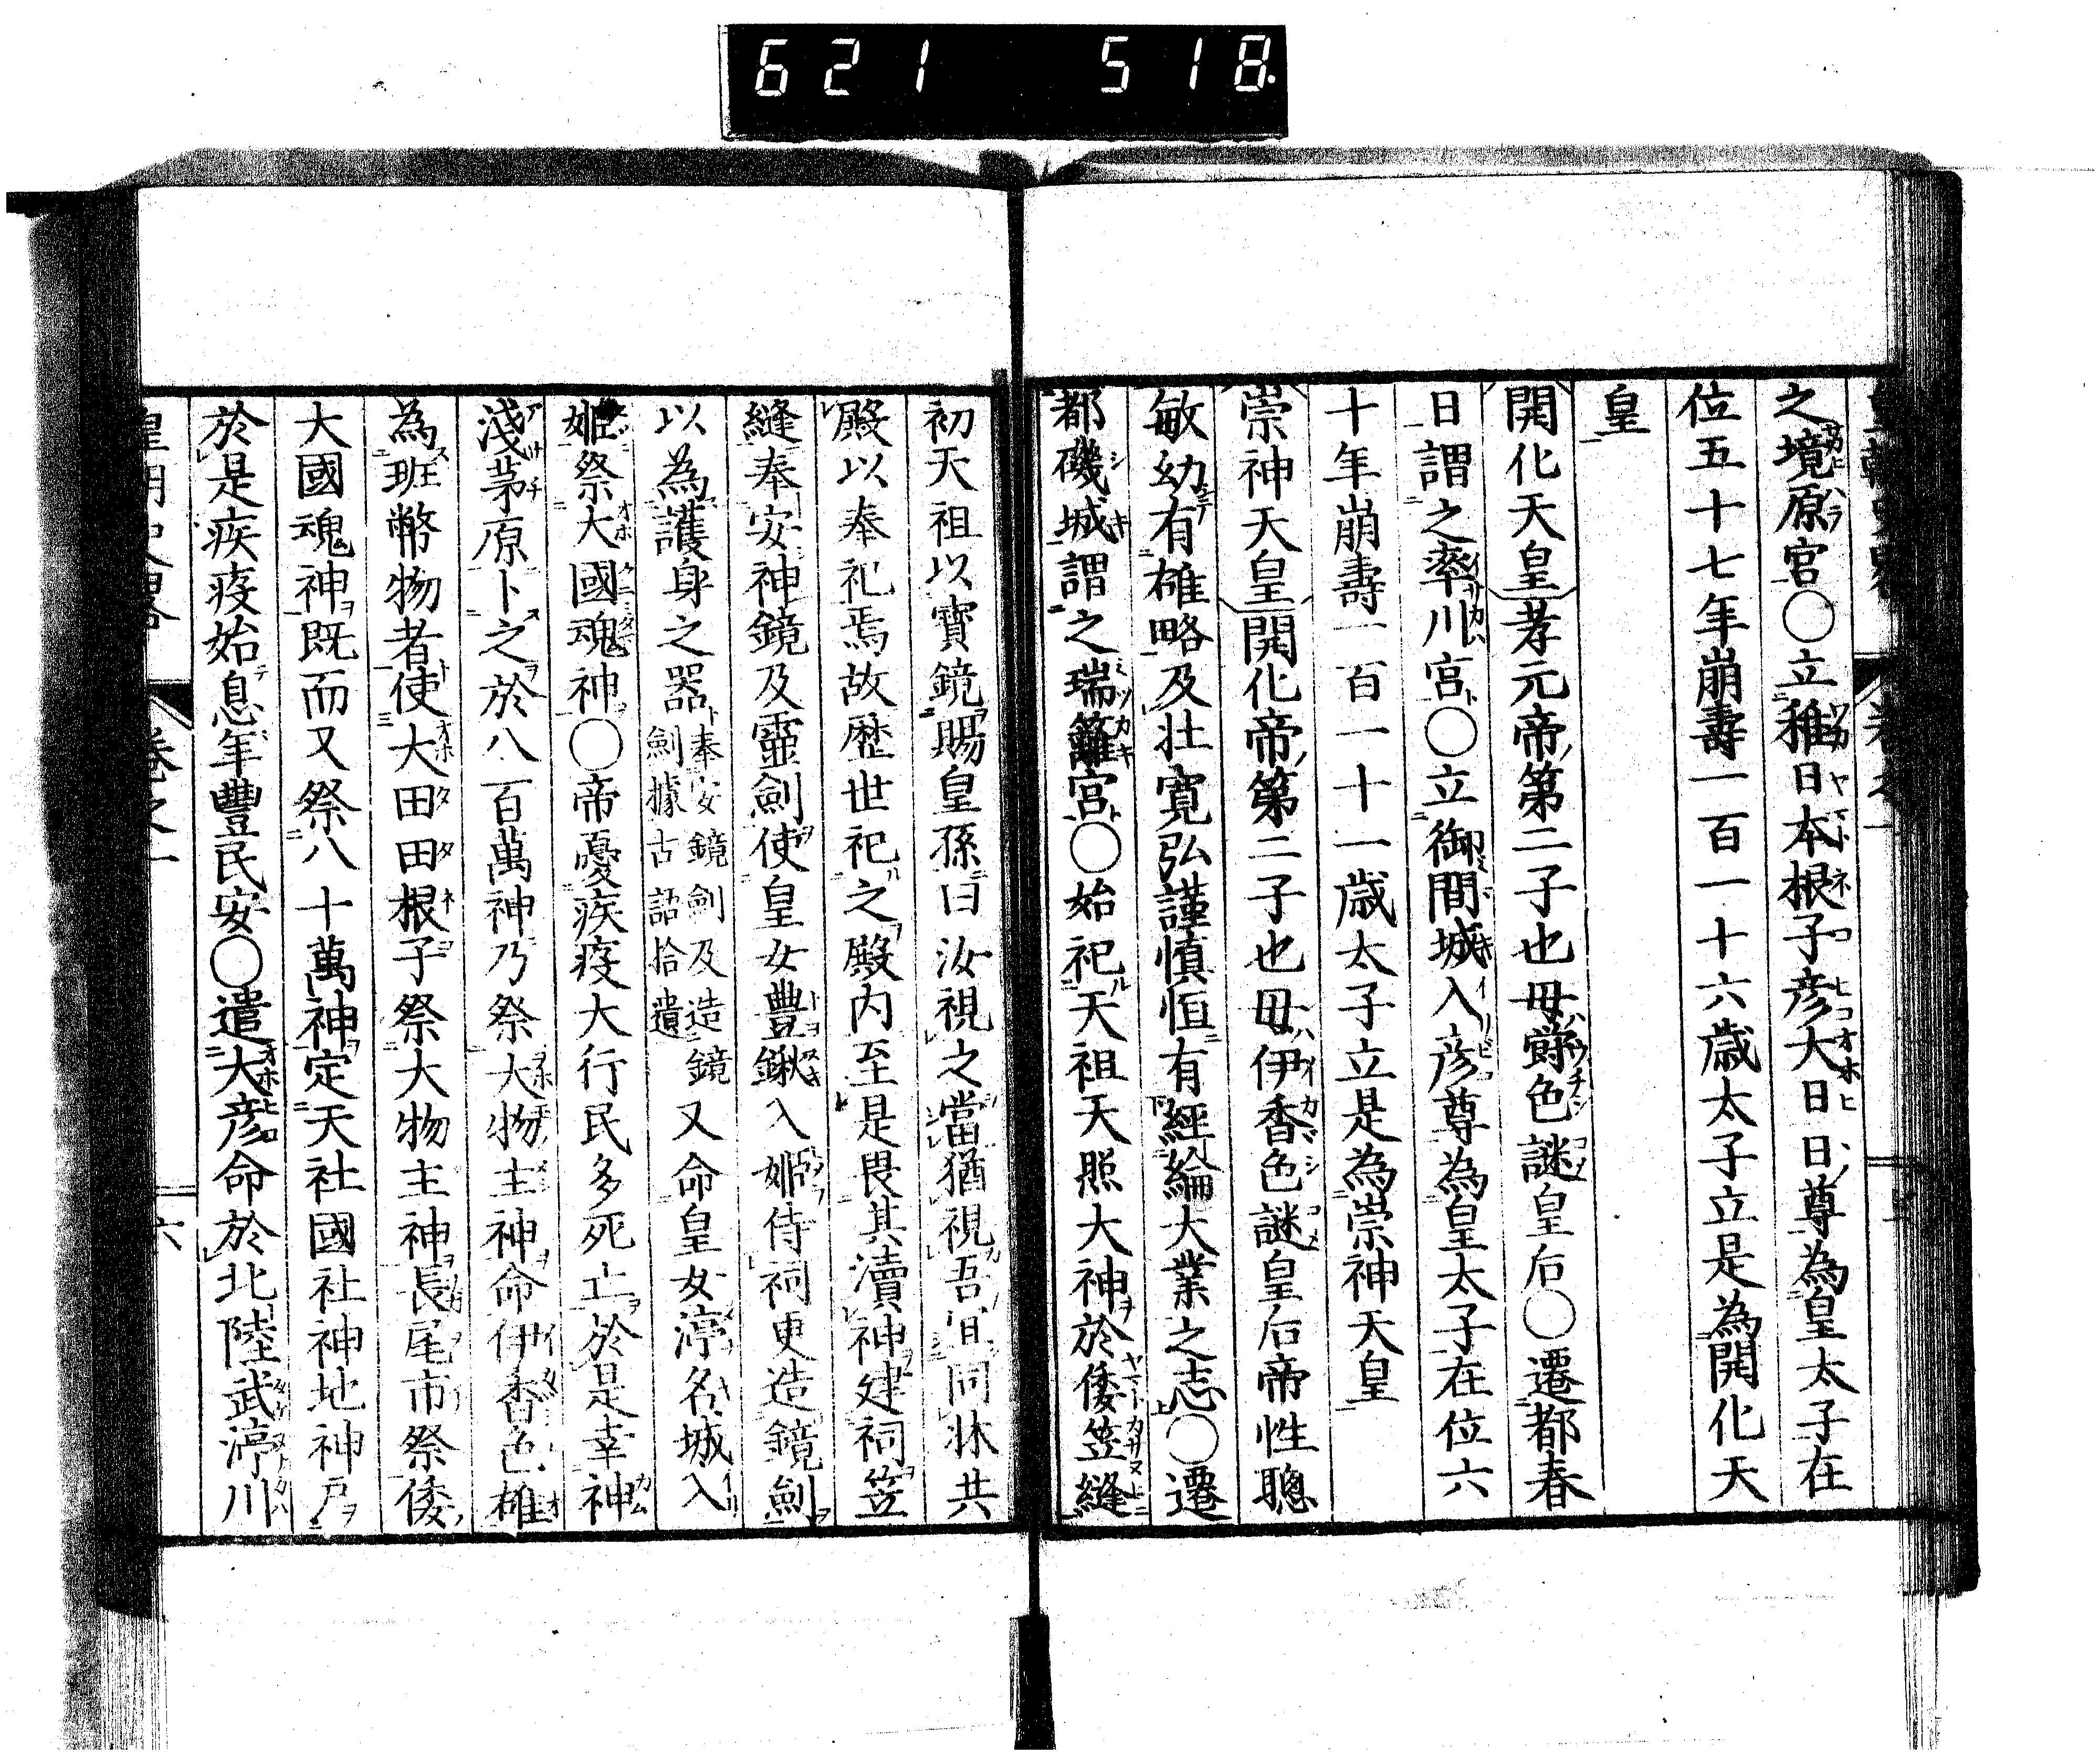 621 518
之境原宮〇立稚日本根子彦大日日尊為皇太子在
位五十七年崩壽一百一十六歳太子立是為開化天
皇
開化天皇孝元帝第二子也母欝色謎皇后〇遷都春
日謂之率川宮〇立御間城入彦尊為皇太子在位六
十年崩壽一百一十一歳太子立是為崇神天皇
崇神天皇開化帝第二子也母伊香色謎皇后帝性聰
敏幼有雄略及壮寛弘謹慎恒有經綸大業之志〇遷
都磯城謂之瑞籬宮〇始祀天祖天照大神於倭笠縫
初天祖以寳鏡賜皇孫曰汝視之當猶視吾宜同牀共
殿以奉祀焉故歴世祀之殿内至是畏其瀆神建祠笠
縫奉安神鏡及靈劍使皇女豊鍬入姫侍祠更造鏡劍
以為護身之器奉安鏡劍及造鏡劍據古語拾遺又命皇女渟名城入
姫祭大國魂神〇帝憂疾疫大行民多死亡於是幸神
淺茅原卜之於八百萬神乃祭大物主神命伊香色雄
為班幣物者使大田田根子祭大物主神長尾市祭倭
大國魂神既而又祭八十萬神定天社國社神地神戸
於是疾疫始息年豐民安〇遣大彦命於北陸武渟川
卷之一
六